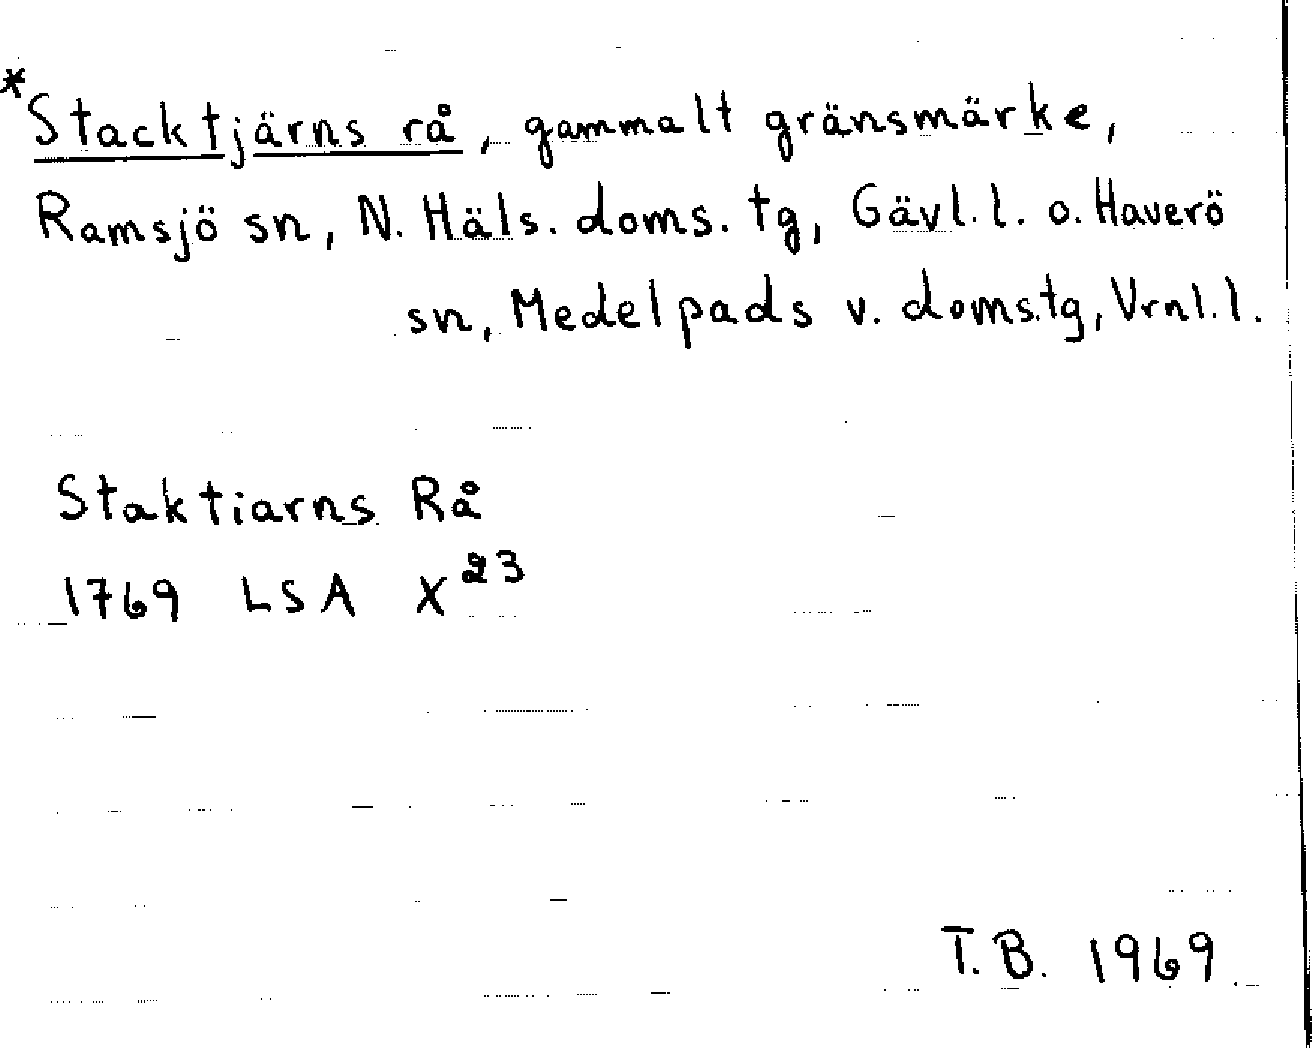 *Stacktjärns rå, gammalt gränsmärke,
Ramsjö sn, N. Häls. doms. tg, Gävl. l. o. Haverö
sn, Medelpads v. doms.tg, Vrnl. l.
Staktiarns Rå
1769 LSA X 23
T.B. 1969.